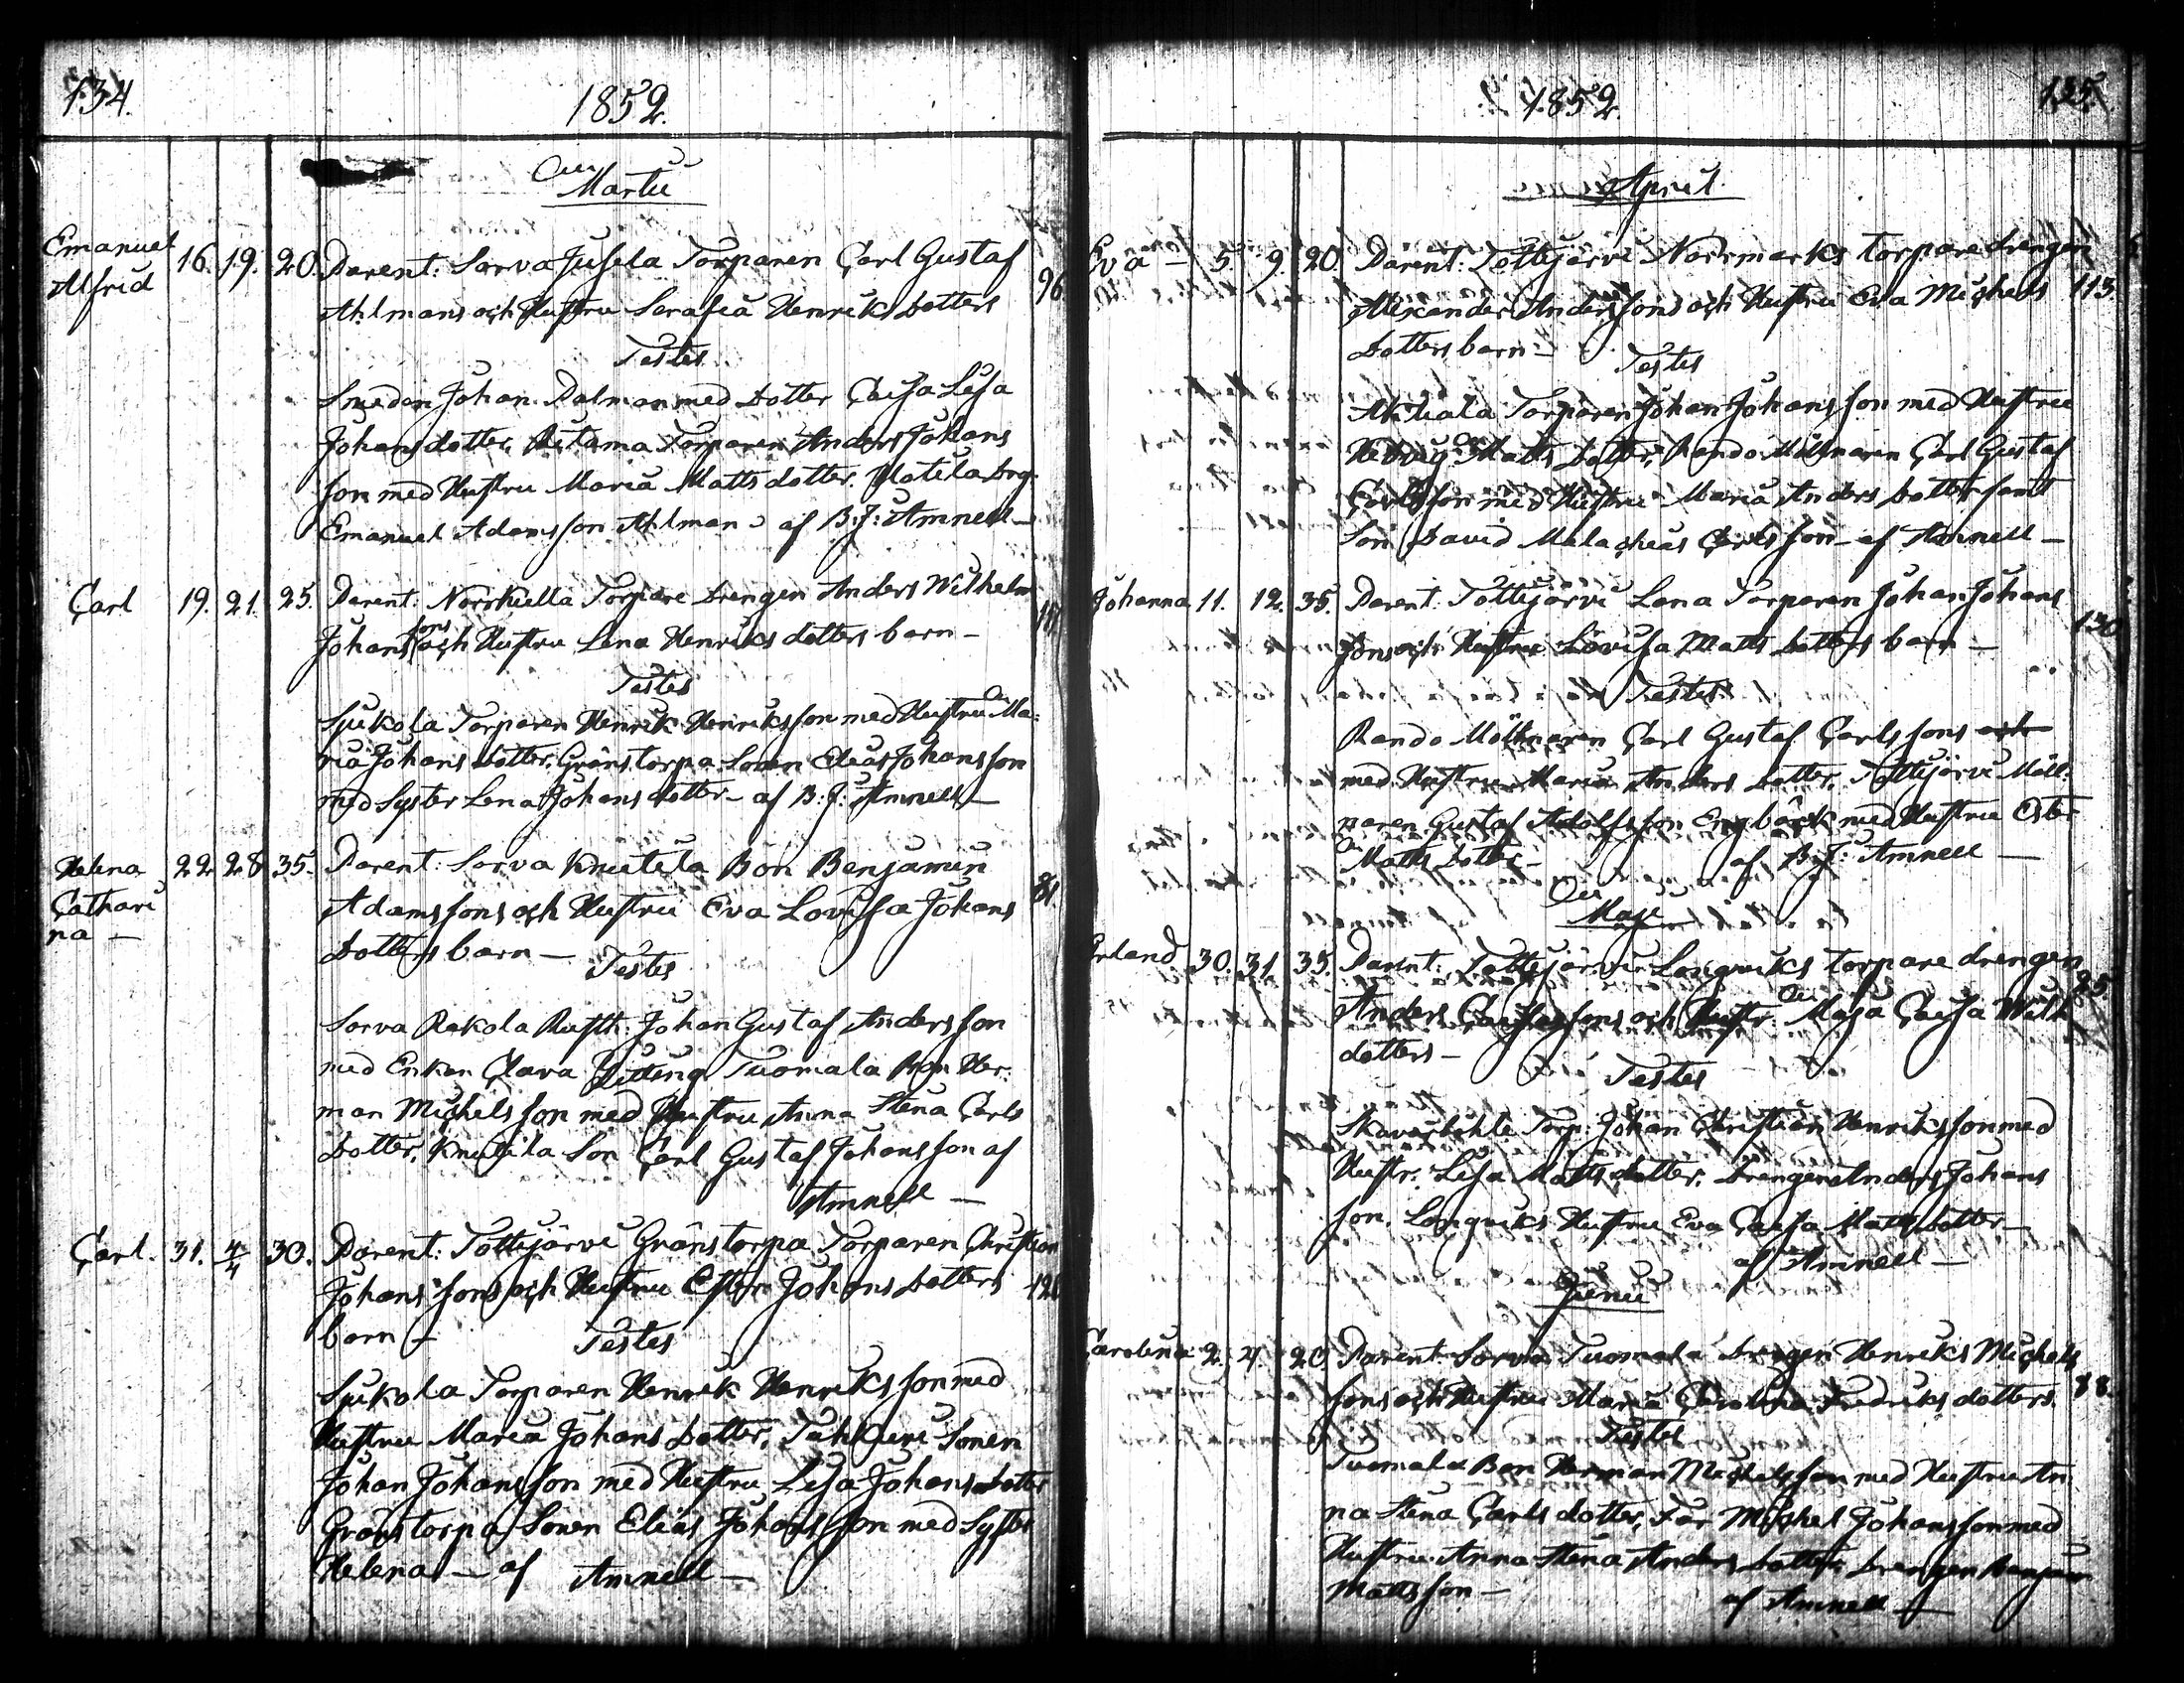 134.
1852.
Martii
Emanuel Alfrid 16. 19. 20. Parent: Sorva Jusela Torparen Carl Gustaf 96
Ahlmans och Hustru Serafia Henriks dotters
Testes
Smeden Johan Dalman med dotter Caisa Lisa
Johans dotter, Torparen Anders Johans
son med Hustru Maria Matts dotter.
Emanuel Adamsson Ahlman af B: J: Amnell
Carl 19. 21. 25. Parent: Norrkulla Torpare drengen Anders Wilhelm
Johanssons och Hustru Lena Henriks dotters barn
Testes
Sjukola Torparen Henrik Henriksson med Hustru Ma-
ria Johans dotter, Gränstorpa Sonen Elias Johansson
med Syster Lena Johans dotter af B: J: Amnell
Helena Cathari na 22 28 35. Parent: Sorva Knutila Bon Benjamin 81.
Adamssons och Hustru Eva Lovisa Johans
dotters barn
Testes
Sorva Rekola Rusth: Johan Gustaf Andersson
med Enkan Clara Tuomala Bon Her-
man Michelsson med Hustru Anna Stina Carls
dotter, Knutila Son Carl Gustaf Johansson af
Amnell
Carl. 31. 4/4 30. Parent: Tottijärvi Gränstorpa Torparen Christian
Johanssons och Hustru Ester Johans dotters
barn
Testes
Sjukola Torparen Henrik Henriksson med
Hustru Maria Johans dotter, Sonen
Johan Johansson med Hustru Lisa Johans dotter
Gränstorpa Sonen Elias Johansson med Syster
Helena af Amnell
1852.
April
Eva 5. 9. 20. Parent: Tottijärvi Norrmarks torpare drengen
Alexander Anderssons och Hustru Eva Michels 113.
dotters barn
Testes
Torparen Johan Johansson med Hustru
Hedvig Matts dotter, Rando Möllnaren Carl Gustaf
Carlsson med Hustru Maria Anders dotter samt
Son David Malachias Carlsson af Amnell
Johanna 11. 12. 35. Parent: Tottijärvi Lena Torparen Johan Johans 130
sons och Hustru Lovisa Matts dotters barn
Testes
Rando Möllnaren Carl Gustaf Carlssons
med Hustru Maria Anders dotter, Tottijärvi Möll-
naren Gustaf Adolfsson Engbäck med Hustru Ester
Matts dotter af B: J: Amnell
Maji
Erland 30. 31. 35. Parent: Tottijärvi Longviks torpare drengen 25
Anders och Hustr: Maja Caisa
dotters
Testes
Torp: Johan Christian Henriksson med
Hustr: Lisa Matts dotter, drengen Anders Johans
son, Longviks Hustru Eva Caisa Matts dotter
af Amnell
Junii
Carolina 2. 4. 20 Parent: Sorva Tuomala drengen Henriks Michels 88.
sons och Hustru Maria Carolina Fredriks dotters.
Testes
Tuomala Bon Herman Michelsson med Hustru An
na Stina Carls dotter, Far Michel Johansson med
Hustru Anna Stina Anders dotter, drengen
Mattsson
af Amnell